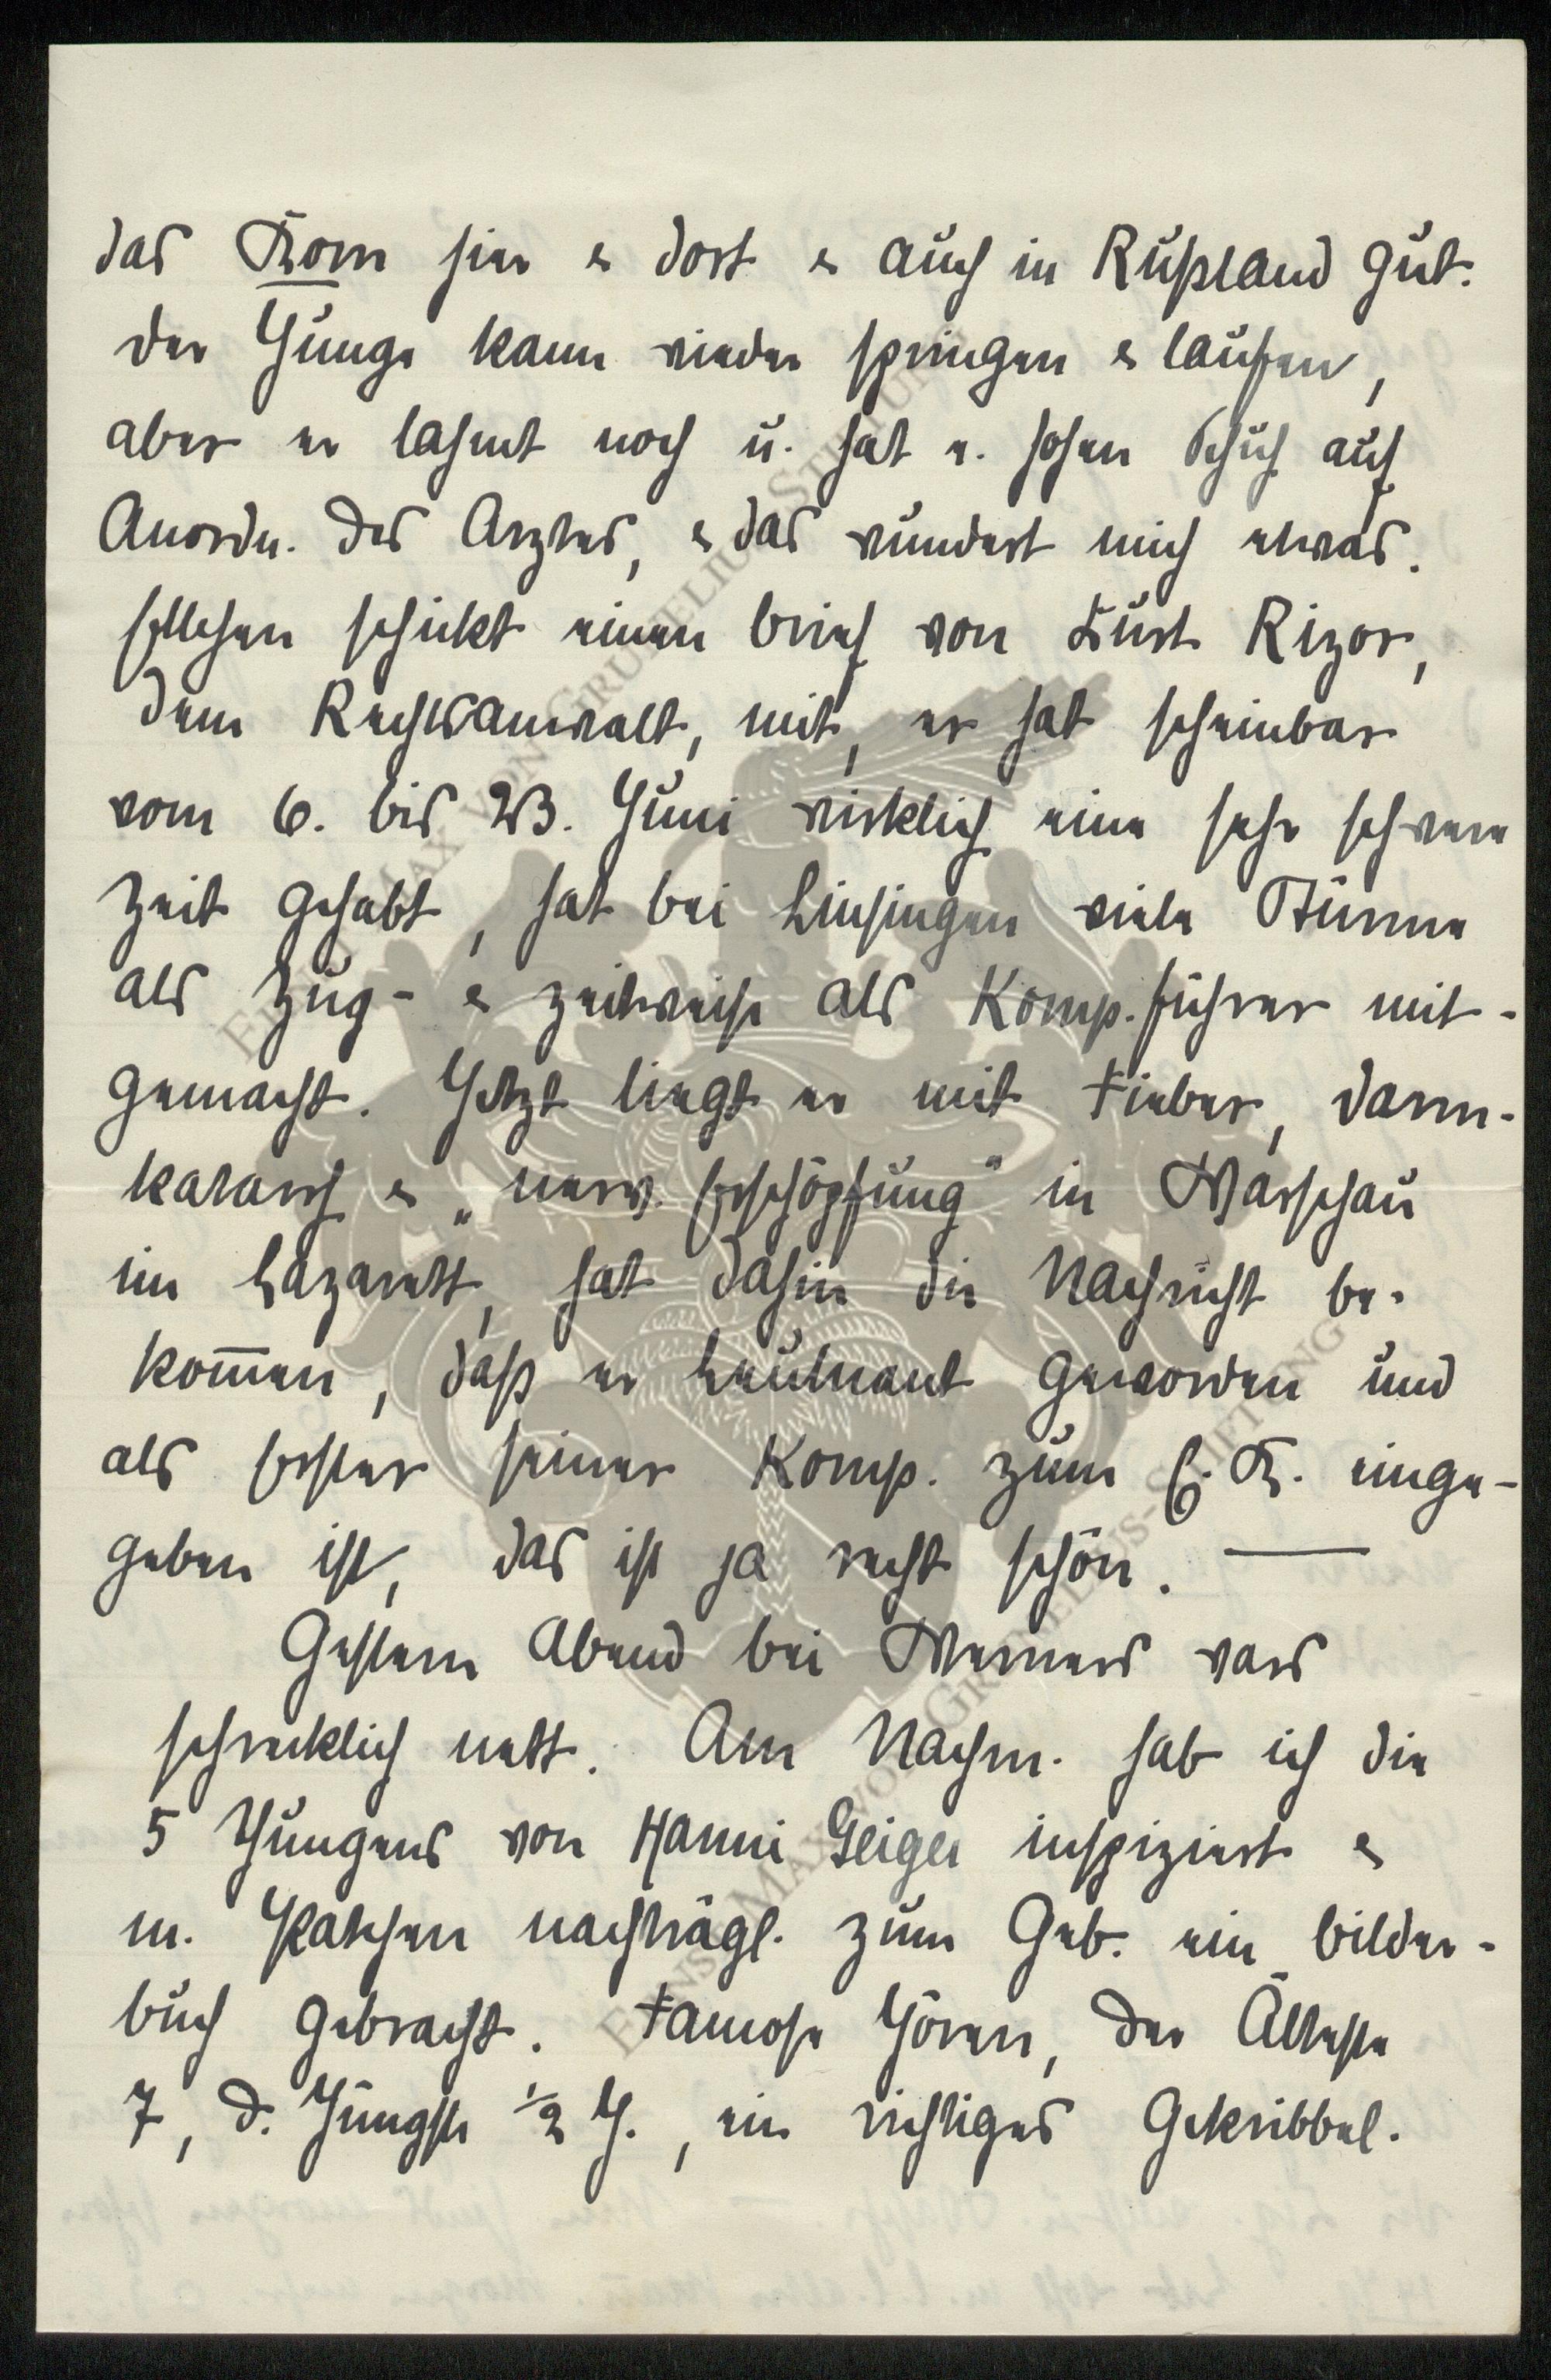 das Korn hier & dort & auch in Rußland gut.
Der Junge kann wieder springen & laufen,
aber er lahmt noch u. hat e. hohen Schuh auf
Anordn. des Arztes, & das wundert mich etwas.
Ellchen schickt einen Brief von Kurt Rizor,
dem Rechtsanwalt, mit, er hat scheinbar
vom 6. bis 23. Juni wirklich eine sehr schwere
Zeit gehabt, hat bei Linsingen viele Stürme
als Zug- & zeitweise als Komp.führer mit-
gemacht. Jetzt liegt er mit Fieber, Darm-
katarrh & „nerv. Erschöpfung" in Warschau
im Lazarett, hat dahin die Nachricht be-
kom̅en, daß er Leutnant geworden und
als Erster seiner Komp. zum E. K. einge-
geben ist, das ist ja recht schön. —
Gestern Abend bei Werners wars
schrecklich nett. Am Nachm. hab ich die
5 Jungens von Hanni Geiger inspiziert &
m. Patchen nachträgl. zum Geb. ein Bilder-
buch gebracht. Famose Gören, der Älteste
7, d. Jüngste ½ J., ein richtiges Gekribbel.
ERNST MAX VON GRUNELIUS-STIFTUNG
ERNST MAX VON GRUNELIUS-STIFTUNG